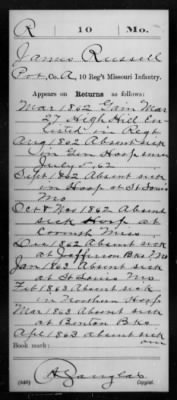 R 10 Mo.
James Russell
Pvt., Co. A, 10 Reg't Missouri Infantry.
Appears on Returns as follows:
Mar 1862 Gain Mar
27 High Hill En-
listed in Regt
Aug 1862 Absent sick
in Gen Hosp since
July 5, 62
Sept 1862 Absent sick
in Hosp at St Louis
Mo
Oct & Nov 1862 Absent
sick Hosp at
Corinth Miss
Dec 1862 Absent sick
at Jefferson Bks Mo
Jan 1863 Absent sick
at St Louis Mo
Feb 1863 Absent sick
in Hosp
Mar 1863 Absent sick
at Benton Bks
Apl 1863 absent sick
Book mark:
(546) Copyist.